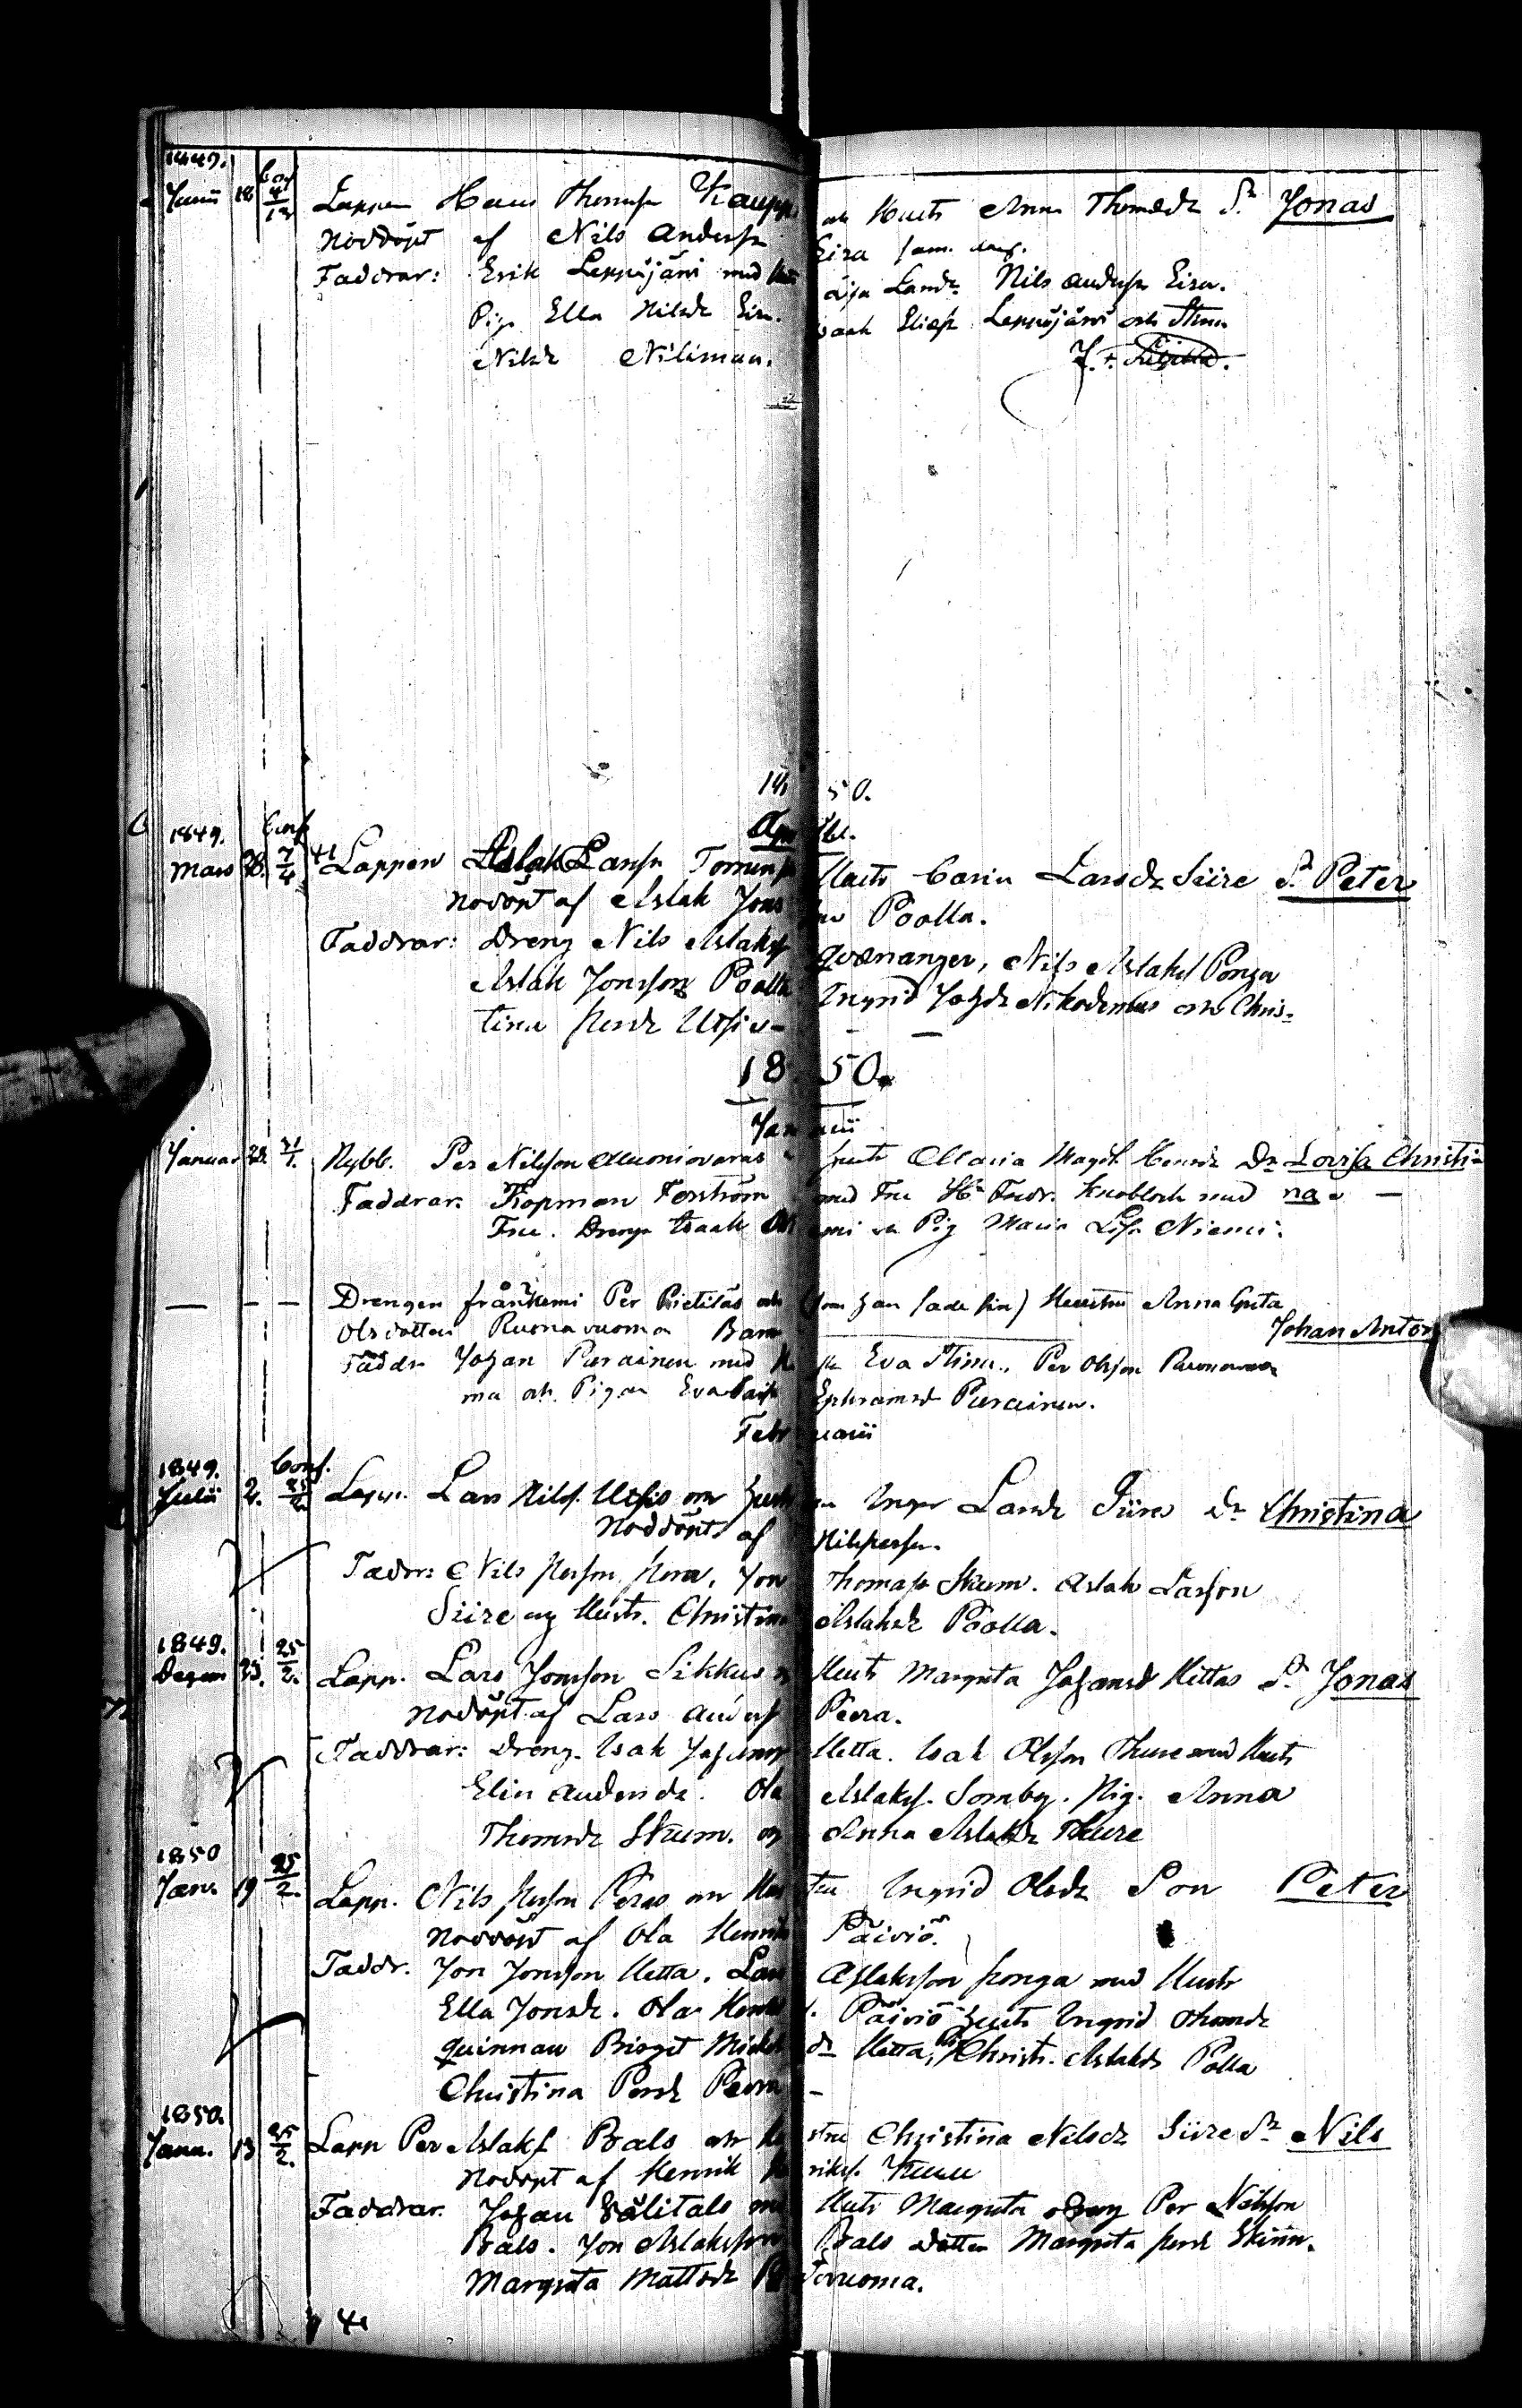 1849.
Junii 18 Conf 4/12 Lappen Hans Thomssn Kauppi och Hustr Anna Thomsdr Sn Jonas
Nöddöpt af Nils Anderssn Eira
Faddrar: Erik Leppäjärvi med Nils Anderssn Eira.
Pig. Ella Nilsdr Eira. Isaak Eliass Leppäjärvi och Stina
Nilsdr Niliman.
1850.
April.
1849. Conf
Mars 28. 7/4 Lappen Aslak Larssn Tornens Hustr Carin Larsdr Siire Sn Peter
Nödöpt af Aslak Jonssn Poolla.
Faddrar: Dreng Nils Aslaks Qvænanger, Nils Aslaks Ponga
Aslak Jonsson Poolla Ingrid Johsdr Nikodemus och Chris-
tina Persdr Utsi
1850.
Januarii
Januar 28. 31/1. Nybb. Per Nilsson Muoniovara Hustr Maria Magdl Henrdr Dr Lovisa Christi-
Faddrar: Kopman Forström med Fru Hr Fredr. Knobloch med na
Fru. Dreng Isaak och Pig Maria Lisa Niemi.
Drengen från Kemi Per Pietiläs och (som han sade sin) Hustru Anna Greta
Olsdotter Ruonavuoma Barn Johan Anton
Faddr Johan Purainen med Eva Stina. Per Olsson Ruonavuo-
ma och Pigan Eva Ephramsd Purainen.
Februarii
1849. Conf.
Julii 2. 25/2. Lapp. Lars Nilss. Utsis och Hustru Inger Larsdr Siires Dr Christina
Nöddöpt af Nils Perssn.
Faddr: Nils Persson Jon Thomass Skum. Aslak Larsson
Siire og Hustr. Christina Aslaksdr Poolla.
1849.
Decem 25/2. Lapp. Lars Jonsson Sikkus Hustr Margreta Johansdr Hettas Sn Jonas
Nödöpt af Lars Anderss Peera.
Faddrar: Dreng. Isak Johanss Hetta. Isak Olsson Thure med Hustr
Elin Andersdr. Ola Aslaks. Somby. Pig. Anna
Thomsdr Skum. og Anna Aslaksdr Thure
1850
Jan. 19 25/2. Lapp. Nils Persson Peras och Hustru Ingrid Olsdr Son Peter
Nöddöpt af Ola Henriks Päiviö.
Faddr. Jon Jonsson Hetta. Lars Aslaksson Ponga med Hustr
Ella Jonsdr. Ola Henriks. Päiviö Hustr Ingrid Thomsdr
Quinnan Birgit Mickelsdr Hetta, Pig Christ. Aslaksdr Polla
Christina Persdr Peera -
1850.
Janu. 13 25/2. Lapp Per Aslaks Bals och Hustru Christina Nilsdr Siire Sn Nils
Nödöpt af Henrik Henriks.
Faddrar. Johan Välitalo med Hustr Margreta Dreng Per Nilsson
Bals. Jon Aslaksson Bals Dotter Margreta Persdr Skum.
Margreta Mattsdr